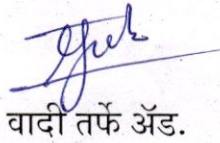 वादी तर्फे ॲड.